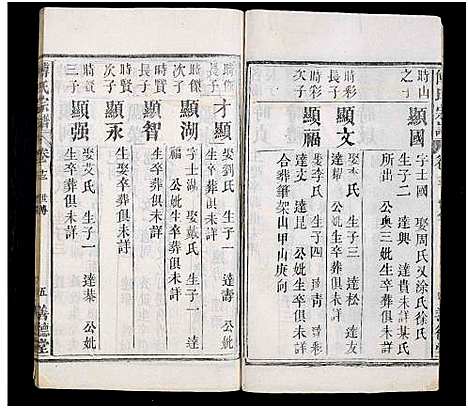 時山之子
顯國
字士國 娶周氏又涂氏徐氏
生子二 達興 達貴未詳某氏
所出 公與三妣生卒葬俱未詳
時彩長子
顯文
娶李氏 生子三 達松 達
達 公妣生卒葬俱未詳
時彩次子
顯福
娶李氏 生子四 青
達 公妣生卒俱未詳
合葬筆架山甲山庚向
時傑長子
才顯
娶劉氏 生子一 達壽 公
妣生卒葬俱未詳
時傑次子
顯湖
字 娶戴氏 生子一 達
福 公妣生卒葬俱未詳
時賢長子
顯智
生卒葬俱未詳
時賢次子
顯永
生卒葬俱未詳
時賢三子
顯强
娶艾氏 生子一 達 公妣
生卒葬俱未詳
傅氏宗譜 卷之 世傳 五 善德堂